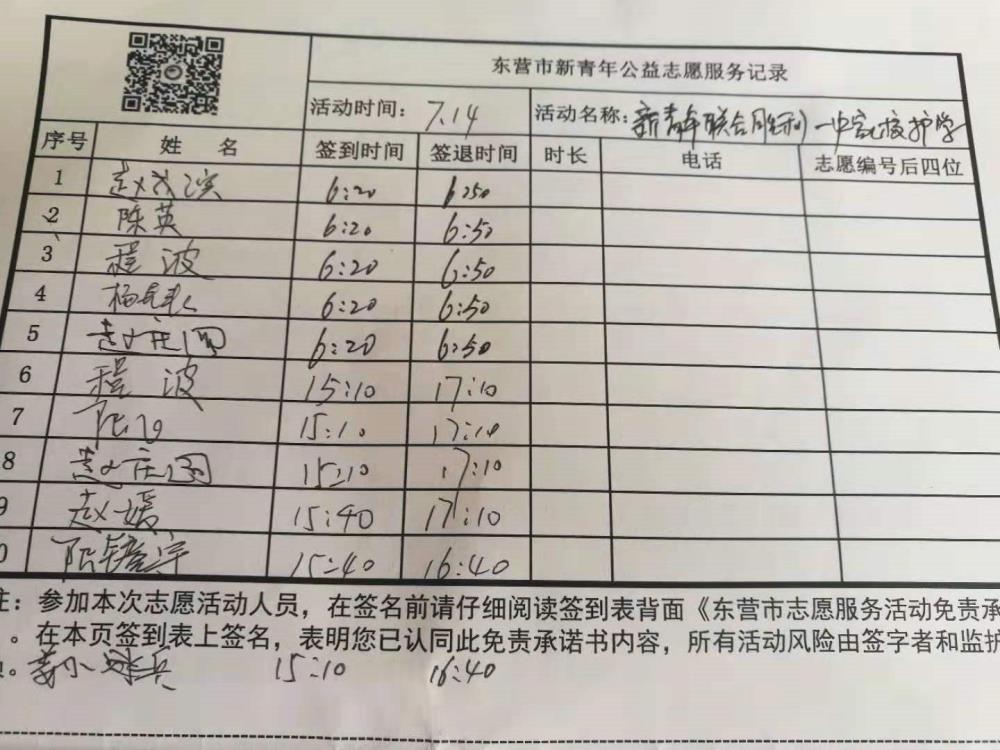 东营市新青年公益志愿服务记录
活动时间: 7.14 活动名称: 新青年联合胜利一中完校护学
序号 姓 名 签到时间 签退时间 时长 电话 志愿编号后四位
1 赵 滨 6:20 6:50
2 陈英 6:20 6:50
3 程波 6:20 6:50
4 杨 6:20 6:50
5 6:20 6:50
6 程波 15:10 17:10
7 15:10 17:10
8 15:10 17:10
9 赵媛 15:40 17:10
0 15:40 16:40
注：参加本次志愿活动人员，在签名前请仔细阅读签到表背面《东营市志愿服务活动免责承
。在本页签到表上签名，表明您已认同此免责承诺书内容，所有活动风险由签字者和监护
。姜小 兵 15:10 16:40